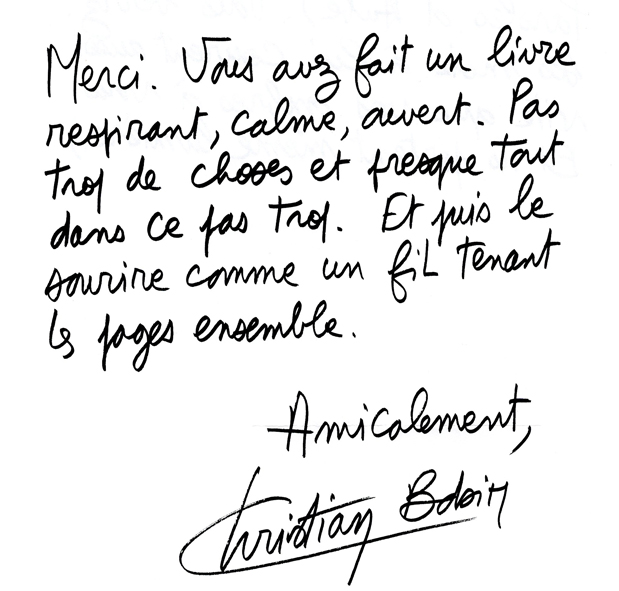 Merci. Vous avez fait un livre
respirant, calme, ouvert. Pas
trop de choses et presque tout
dans ce pas trop. Et puis le
sourire comme un fil tenant
les pages ensemble.
Amicalement,
Christian Bobin